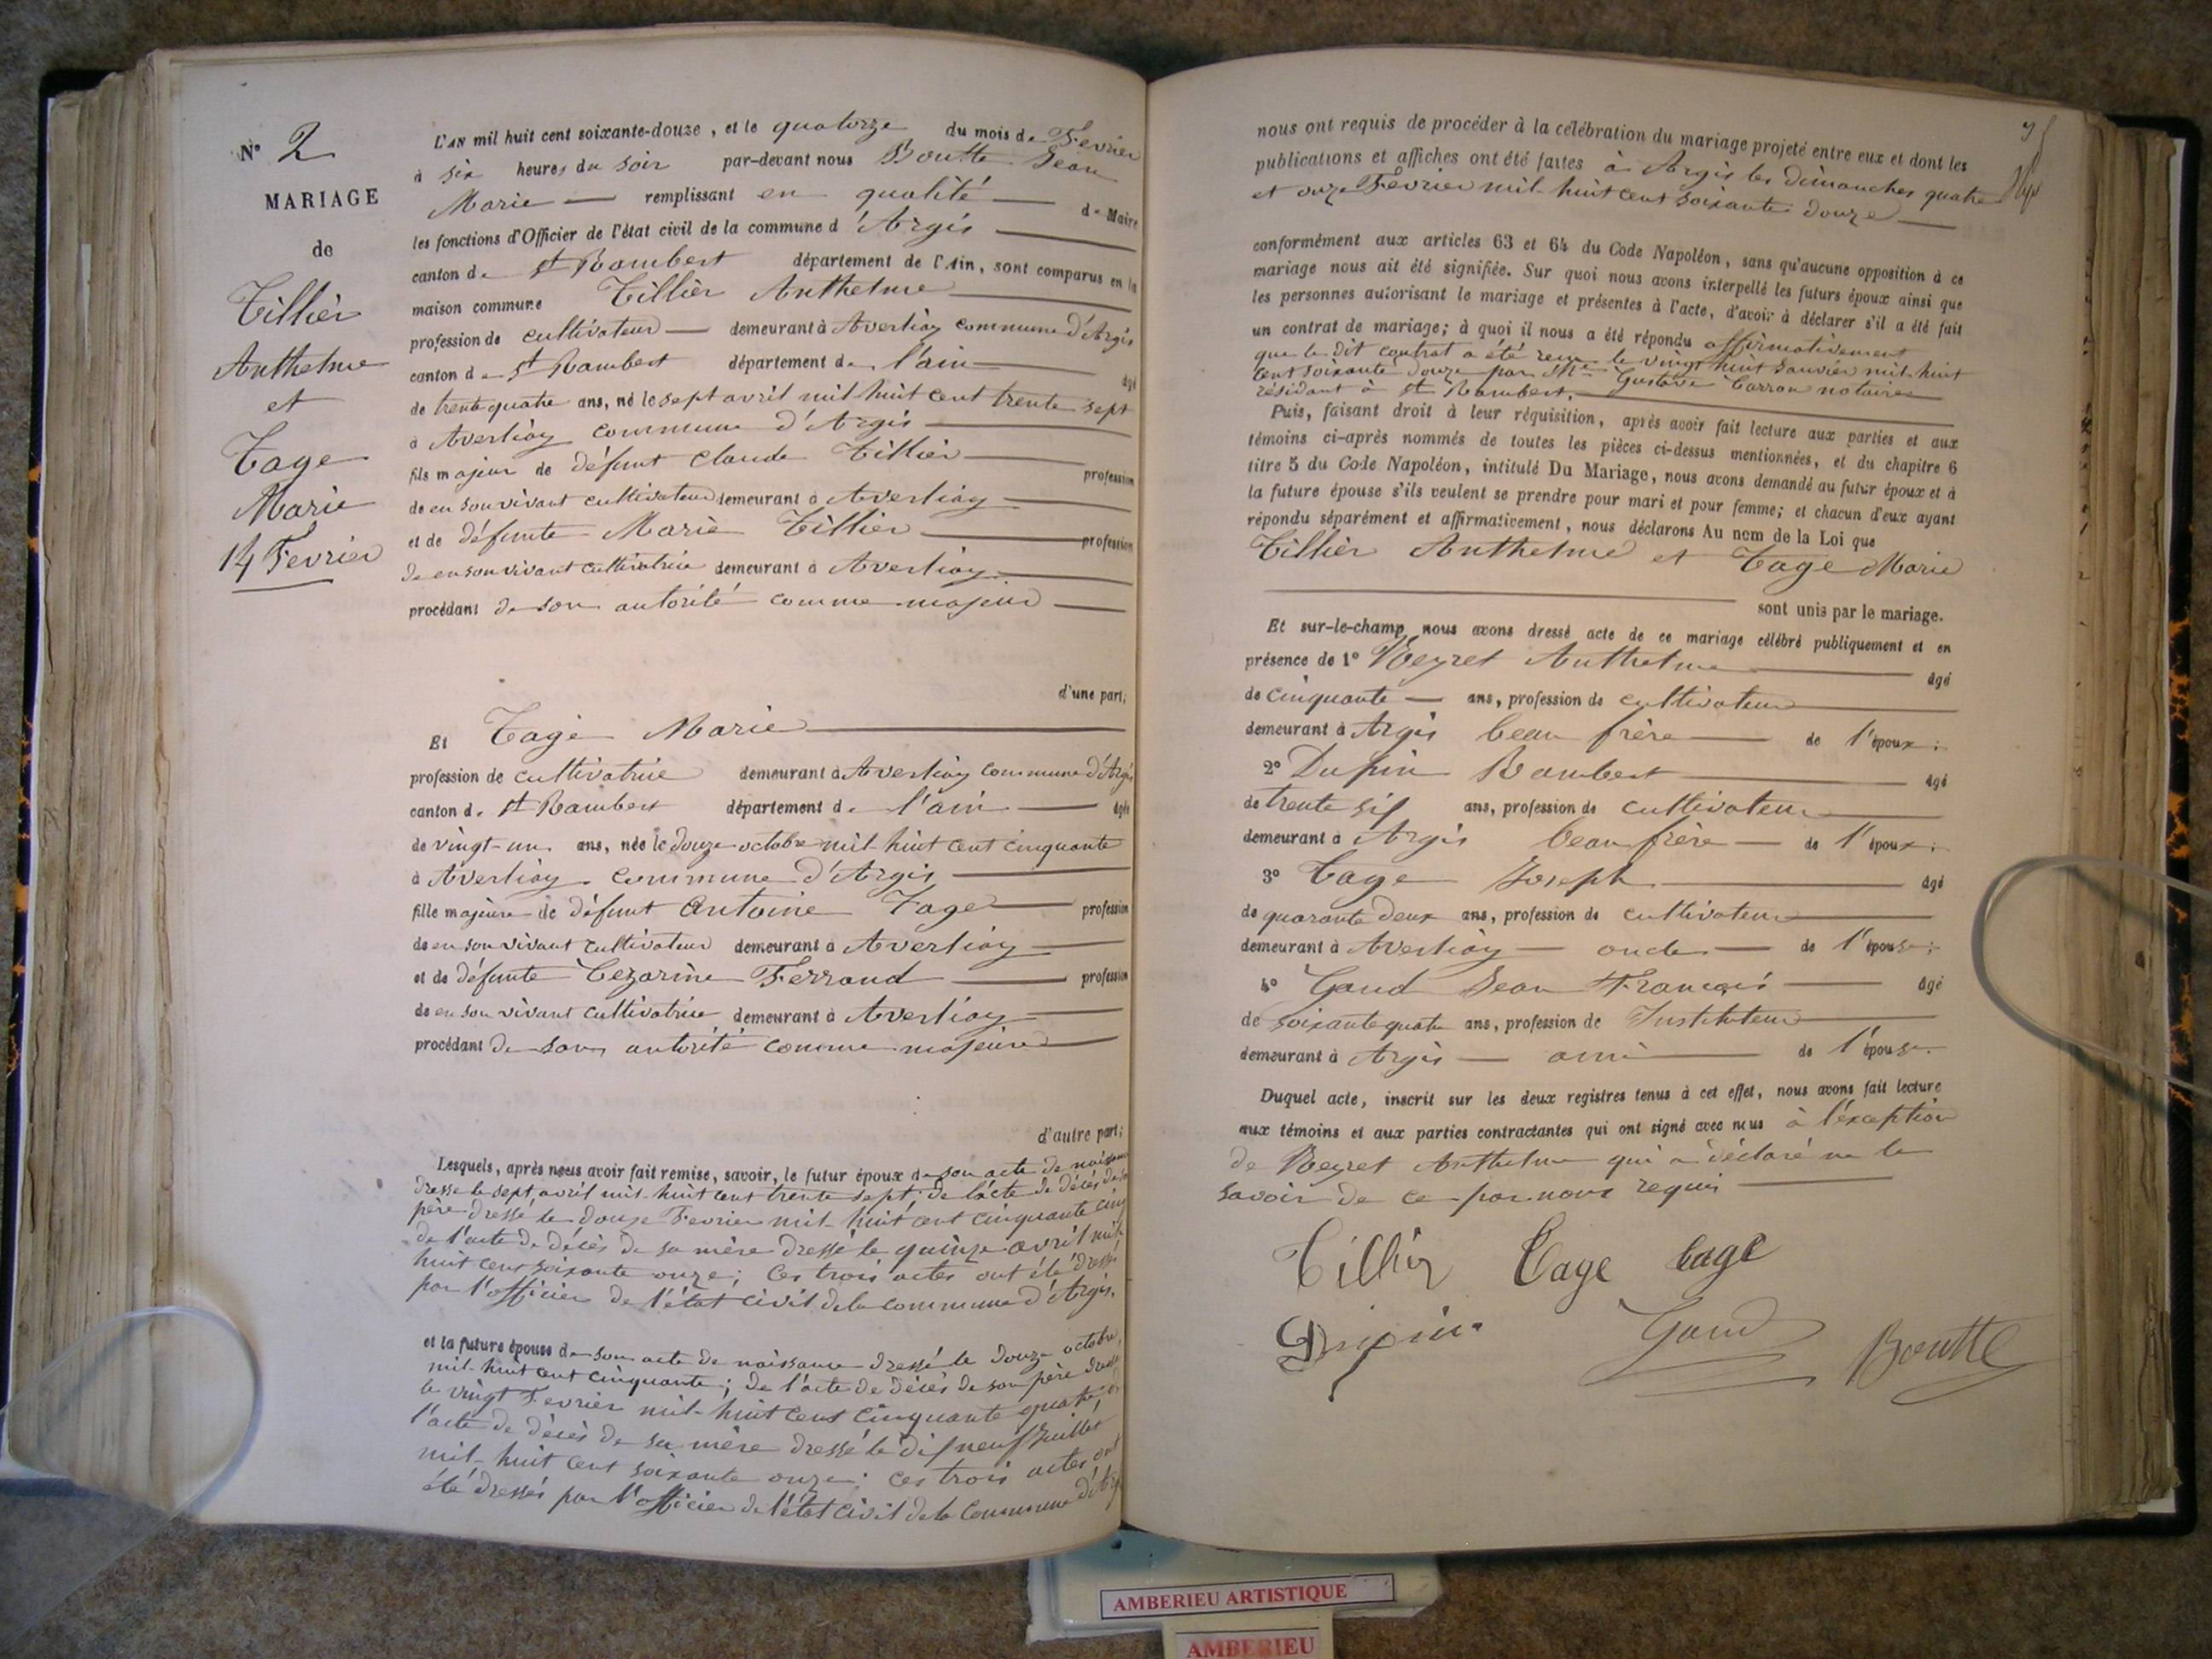 N° 2
MARIAGE
de
Tillier
Anthelme
et
Tage
Marie
14 Fevrier
L'AN mil huit cent soixante-douze, et le quatorze du mois de Fevrier
à six heures du soir par-devant nous Boutte Jean
Marie — remplissant en qualité — de Maire
les fonctions d'Officier de l'état civil de la commune d'Argis
canton de St Rambert département de l'Ain, sont comparus en la
maison commune Tillier Anthelme
profession de cultivateur — demeurant à Averliaz commune d'Argis
canton de St Rambert département de l'ain — âgé
de trente quatre ans, né le sept avril mil huit cent trente sept
à Averliaz commune d'Argis
fils majeur de défunt Claude Tillier — profession
de en son vivant cultivateur demeurant à Averliaz
et de défunte Marie Tillier — profession
de en son vivant cultivatrice demeurant à Averliaz
procédant de son autorité comme majeur
d'une part;
Et Tage Marie
profession de cultivatrice demeurant à Averliaz commune d'Argis
canton de St Rambert département de l'ain — âgée
de vingt-un ans, née le douze octobre mil huit cent cinquante
à Averliaz commune d'Argis
fille majeure de défunt Antoine Tage — profession
de en son vivant cultivateur demeurant à Averliaz
et de défunte Cezarine Ferrand — profession
de en son vivant cultivatrice demeurant à Averliaz
procédant de son autorité comme majeure
d'autre part;
Lesquels, après nous avoir fait remise, savoir, le futur époux de son acte de naissance
dressé le sept avril mil huit cent trente sept; de l'acte de décès de son
père dressé le douze Fevrier mil huit cent cinquante cinq
de l'acte de décès de sa mère dressé le quinze avril mil
huit cent soixante onze; Ces trois actes ont été dressés
par l'officier de l'état civil de la commune d'Argis.
et la future épouse de son acte de naissance dressé le douze octobre
mil huit cent cinquante; de l'acte de décès de son père dressé
le vingt Fevrier mil huit cent cinquante quatre, de
l'acte de décès de sa mère dressé le dix neuf Juillet
mil huit cent soixante onze; ces trois actes ont
été dressés par l'officier de l'état civil de la commune d'Argis
nous ont requis de procéder à la célébration du mariage projeté entre eux et dont les
publications et affiches ont été faites à Argis les dimanches quatre
et onze Fevrier mil huit cent soixante douze
conformément aux articles 63 et 64 du Code Napoléon, sans qu'aucune opposition à ce
mariage nous ait été signifiée. Sur quoi nous avons interpellé les futurs époux ainsi que
les personnes autorisant le mariage et présentes à l'acte, d'avoir à déclarer s'il a été fait
un contrat de mariage; à quoi il nous a été répondu affirmativement
que le dit contrat a été reçu le vingt huit Janvier mil huit
cent soixante douze par Me Gustave Carron notaire
résidant à St Rambert.
Puis, faisant droit à leur réquisition, après avoir fait lecture aux parties et aux
témoins ci-après nommés de toutes les pièces ci-dessus mentionnées, et du chapitre 6
titre 5 du Code Napoléon, intitulé Du Mariage, nous avons demandé au futur époux et à
la future épouse s'ils veulent se prendre pour mari et pour femme; et chacun d'eux ayant
répondu séparément et affirmativement, nous déclarons Au nom de la Loi que
Tillier Anthelme et Tage Marie
sont unis par le mariage.
Et sur-le-champ nous avons dressé acte de ce mariage célébré publiquement et en
présence de 1° Reyret Anthelme — âgé
de cinquante — ans, profession de cultivateur
demeurant à Argis beau frère — de l'époux;
2° Dupin Rambert — âgé
de trente six ans, profession de cultivateur
demeurant à Argis beau frère — de l'époux;
3° Tage Joseph — âgé
de quarante deux ans, profession de cultivateur
demeurant à Averliaz — oncle — de l'épouse;
4° Gaud Jean François — âgé
de soixante quatre ans, profession de Instituteur
demeurant à Argis — ami — de l'épouse.
Duquel acte, inscrit sur les deux registres tenus à cet effet, nous avons fait lecture
aux témoins et aux parties contractantes qui ont signé avec nous à l'exception
de Reyret Anthelme qui a déclaré ne le
savoir de ce par nous requis
Tillier Tage tage
Dupin Gaud Boutte
AMBERIEU ARTISTIQUE
AMBERIEU